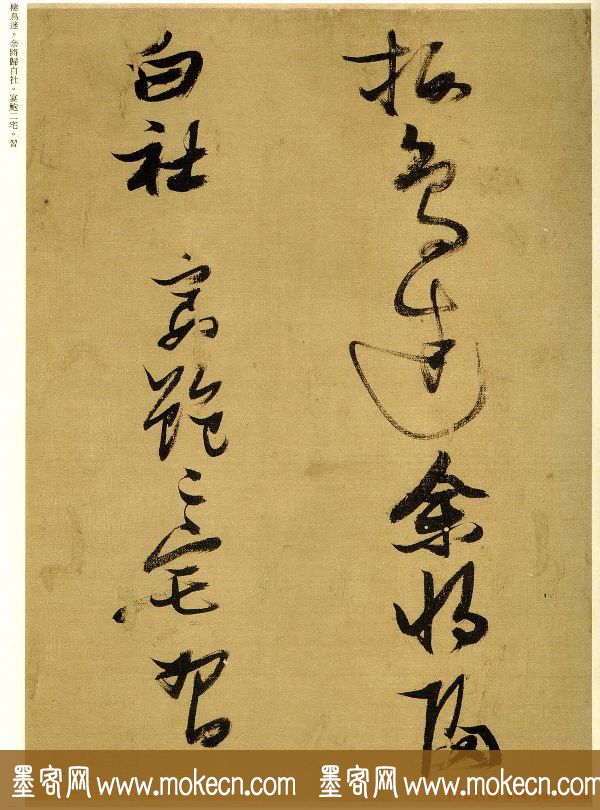 栖鳥迷余將歸
白社 宴鮑二宅習
棲鳥迷。余將歸白社。宴鮑二宅。習
墨客网 www.mokecn.com 墨客网 www.mokecn.com